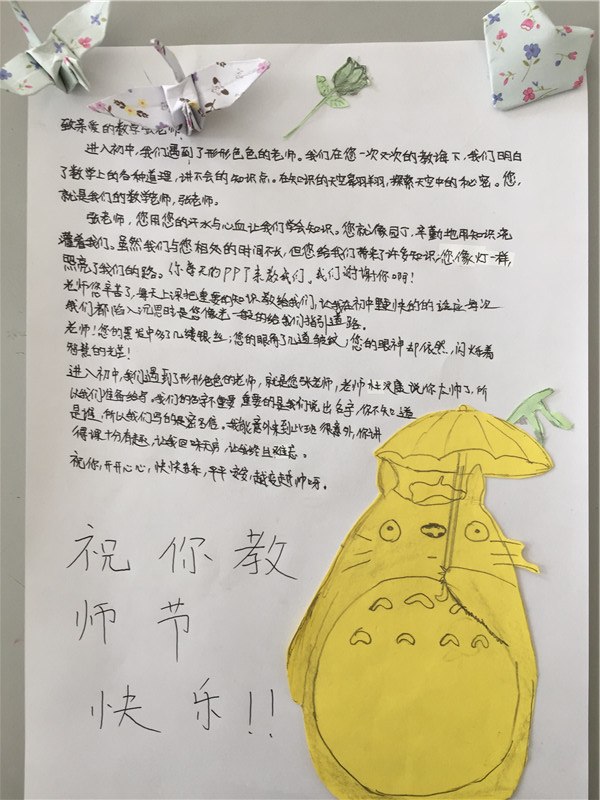 致亲爱的数学张老师:
进入初中,我们遇到了形形色色的老师。我们在您一次又一次的教诲下,我们明白
了数学上的各种道理,讲不会的知识点。在知识的天空翱翔,探索天空中的秘密。您,
就是我们的数学老师,张老师。
张老师,您用您的汗水与心血让我们学会知识。您就像园丁,辛勤地用知识浇
灌着我们。虽然我们与您相处的时间不长,但您给我们带来了许多知识,您像灯一样,
照亮了我们的路。你每天的PPT来教我们。我们谢谢你啊!
老师您辛苦了,每天上课把重要的知识教给我们,让我在初中更快的适应每次
我们都陷入沉思时是您像光一般的给我们指引道路。
老师!您的黑发中多了几缕银丝;您的眼角了几道皱纹;您的眼神却依然,闪烁着
智慧的光芒!
进入初中,我们遇到了形形色色的老师,就是您张老师,老师 说你太帅了,所
以我们准备给你,我们的名字不重要 重要的是我们说出名字,你不知道
是谁,所以我们写的是密名信。我能意外来到此班很意外,你讲
得课十分有趣,让我回味无穷,让我终旦难忘。
祝你,开开心心,快快乐乐,平平安安,越变越帅呀。
祝你教
师节
快乐!!